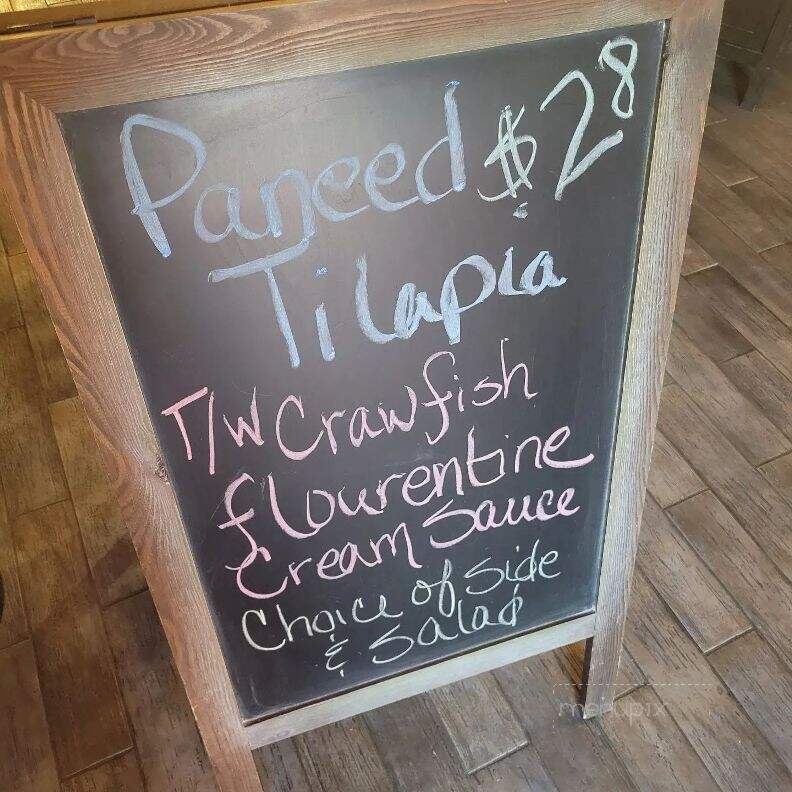 Paneed $28
Tilapia
T/W Crawfish
flourentine
Cream Sauce
Choice of Side
& Salad
menupix